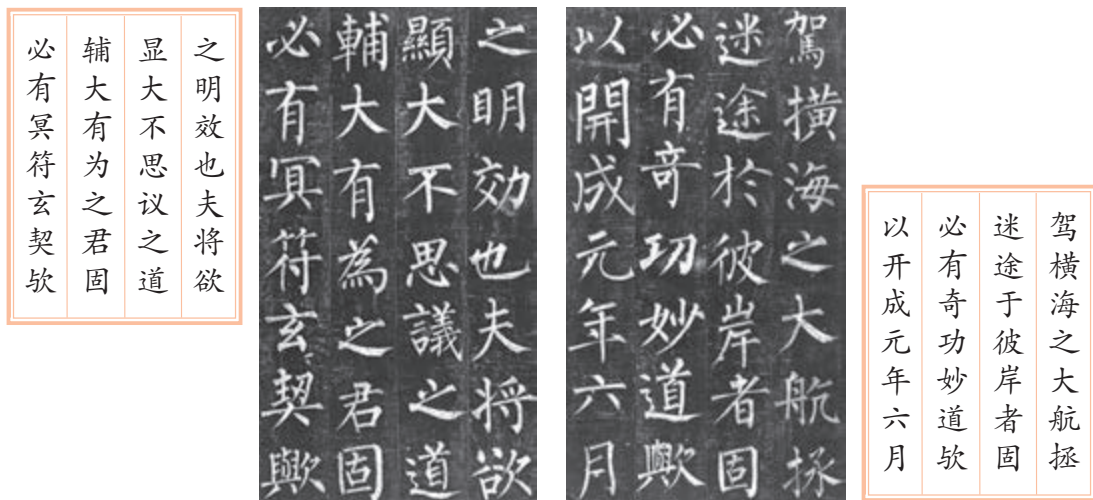 之明效也夫将欲
显大不思议之道
辅大有为之君固
必有冥符玄契欤
之明効也夫将欲
顯大不思議之道
輔大有為之君固
必有冥符玄契歟
駕橫海之大航拯
迷途於彼岸者固
必有奇功妙道歟
以開成元年六月
驾横海之大航拯
迷途于彼岸者固
必有奇功妙道欤
以开成元年六月